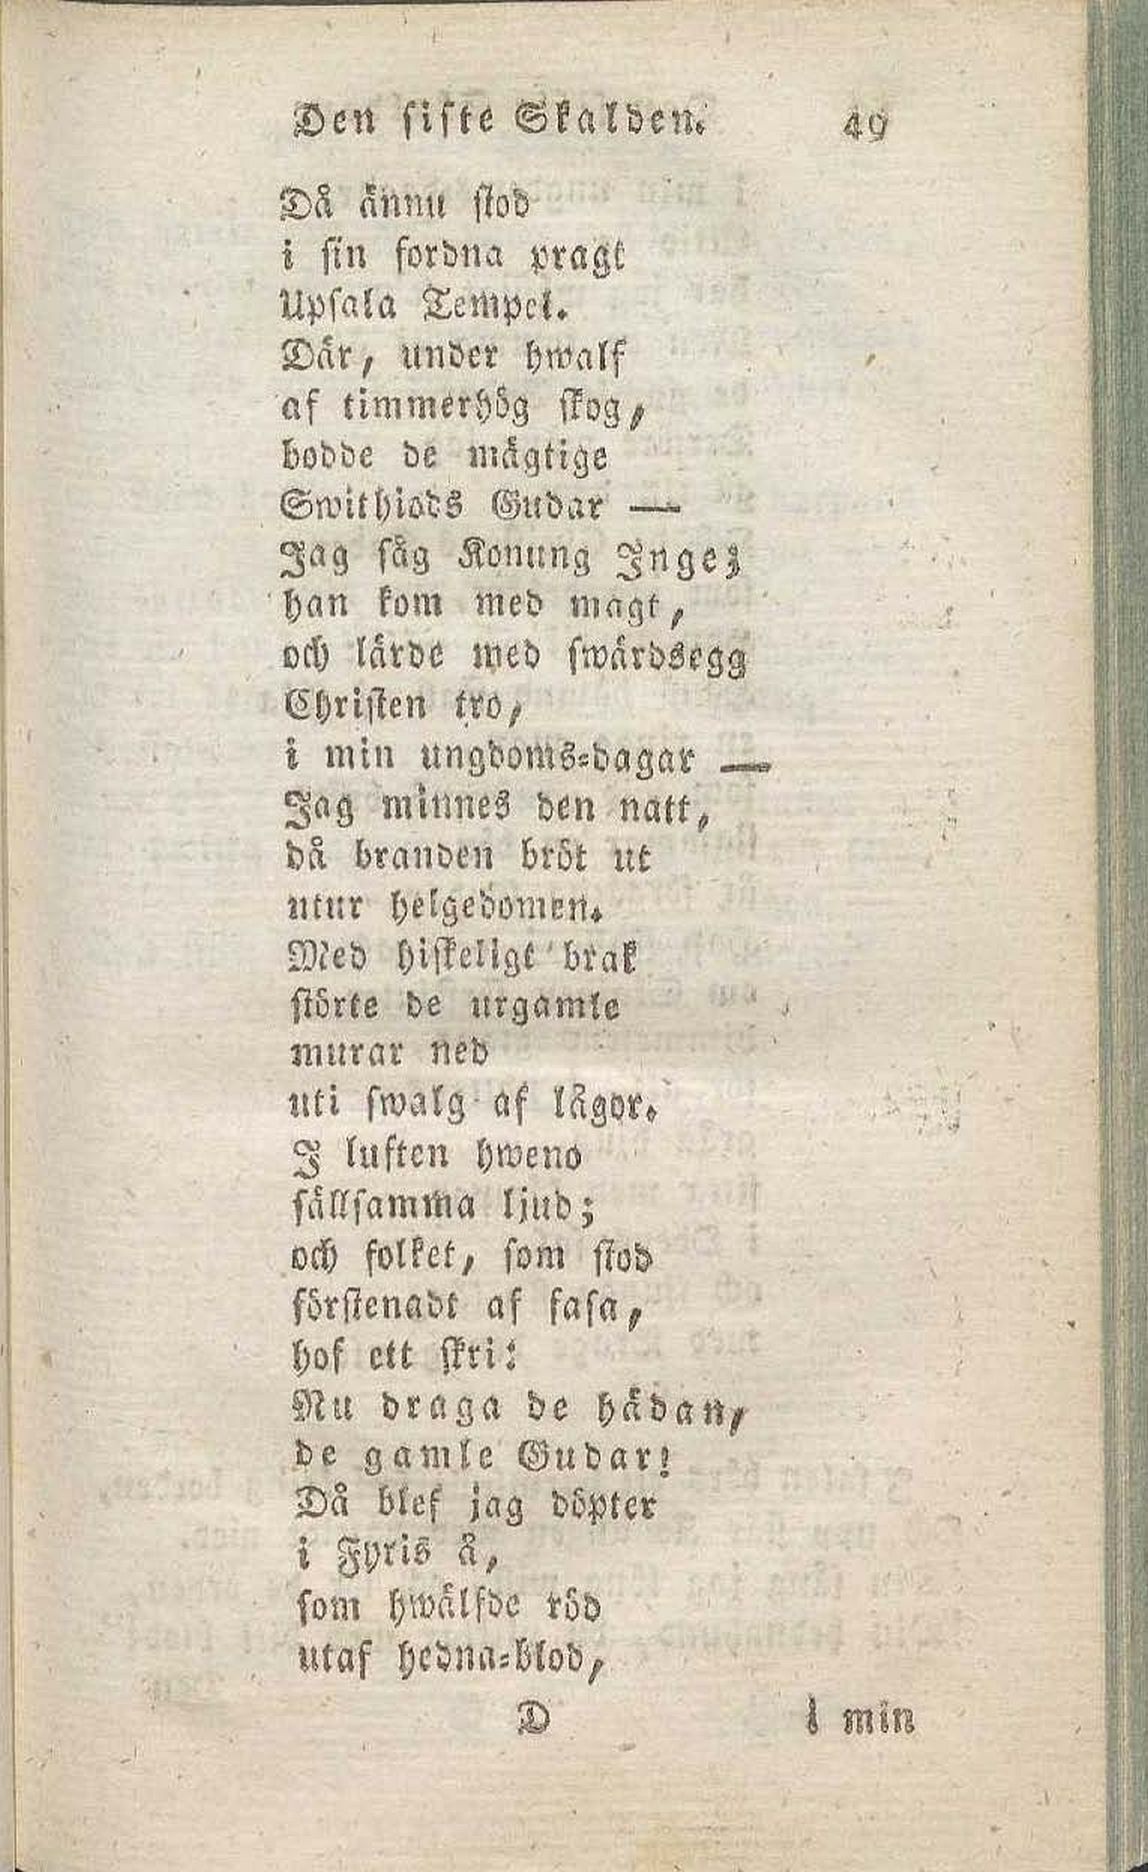 Den siste Skalden. 49
Då ännu stod
i sin fordna pragt
Upsala Tempel.
Där, under hwalf
af timmerhög skog,
bodde de mägtige
Swithiods Gudar —
Jag såg Konung Inge;
han kom med magt,
och lärde med swärdsegg
Christen tro,
i min ungdoms-dagar —
Jag minnes den natt,
då branden bröt ut
utur helgedomen.
Med hiskeligt brak
störte de urgamle
murar ned
uti swalg af lågor.
I luften hweno
sällsamma ljud;
och folket, som stod
förstenadt af fasa,
hof ett skri:
Nu draga de hädan,
de gamle Gudar!
Då blef jag döpter
i Fyris å,
som hwälfde röd
utaf hedna-blod,
D i min